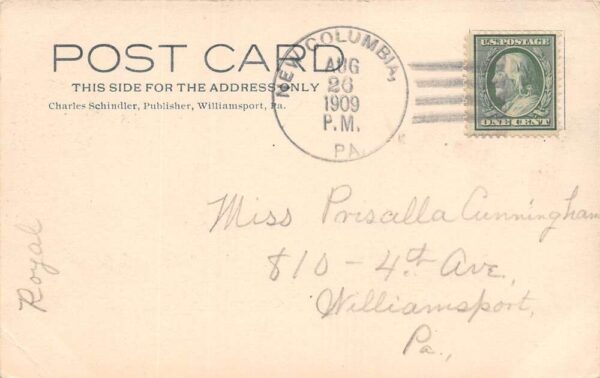 POST CARD
THIS SIDE FOR THE ADDRESS ONLY
Charles Schindler, Publisher, Williamsport, Pa.
NEW COLUMBIA,
AUG
26
1909
P.M.
PA.
U.S. POSTAGE
ONE CENT
Miss Prisalla Cunningham
810 - 4th Ave,
Williamsport,
Pa.,
Royal